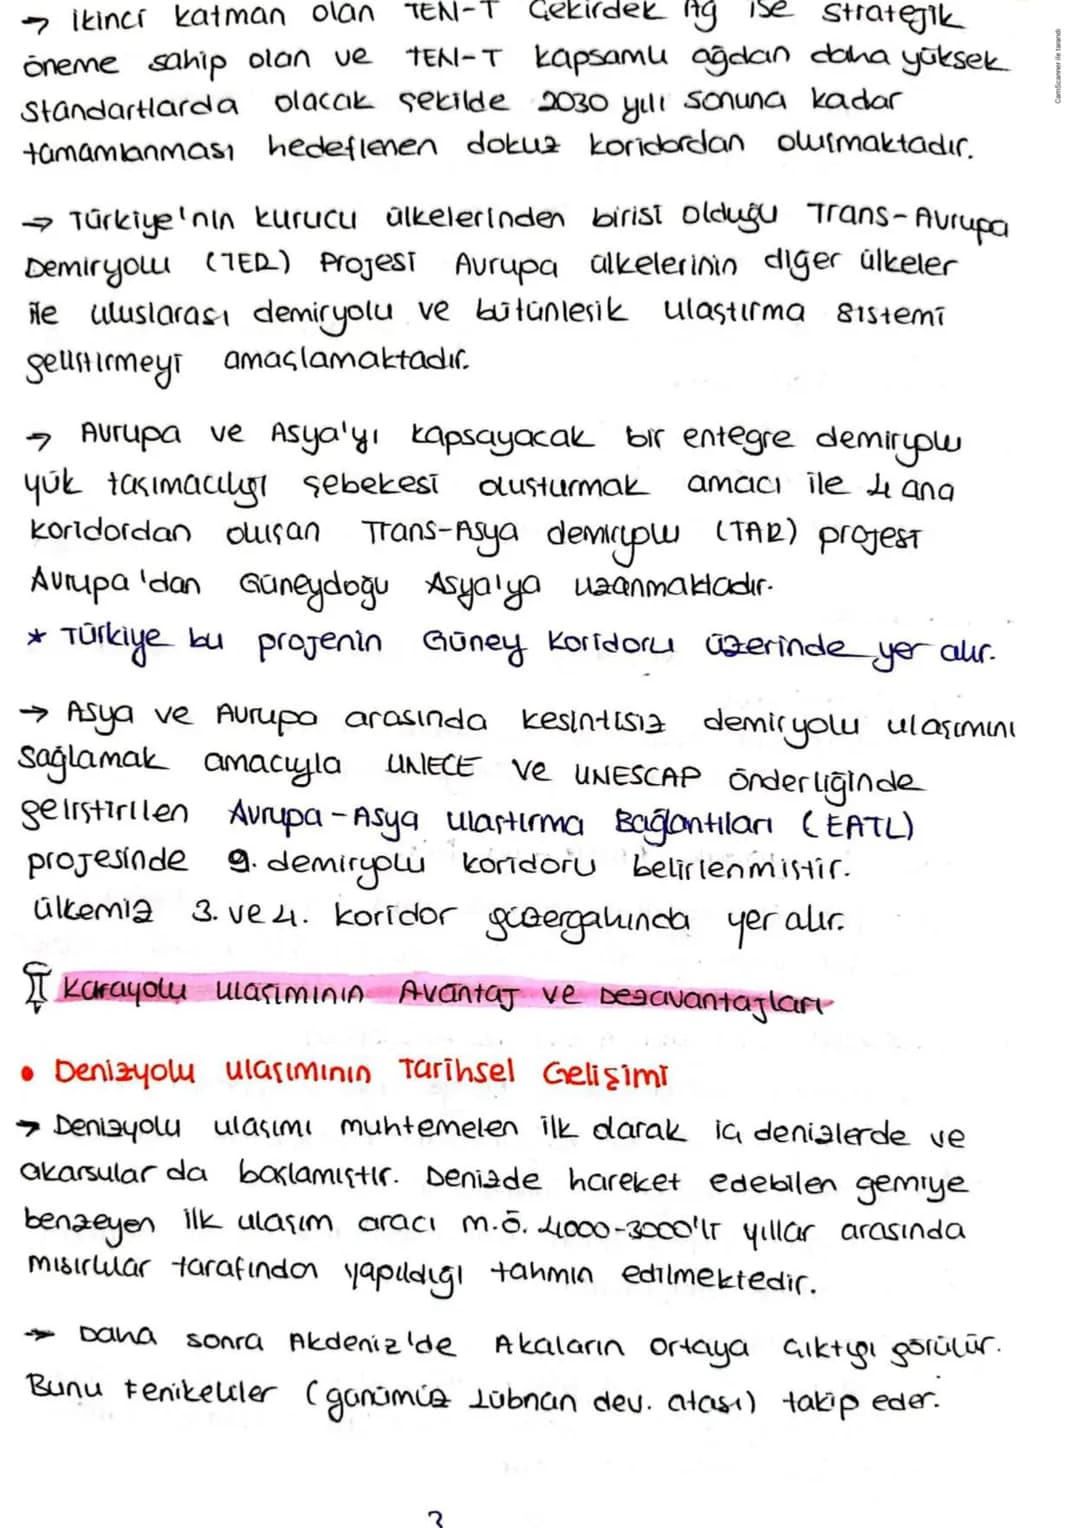 → ikinci katman olan TEN-T Çekirdek Ağ ise stratejik
öneme sahip olan ve TEN-T kapsamlı ağdan daha yüksek
standartlarda olacak şekilde 2030 yılı sonuna kadar
tamamlanması hedeflenen dokuz koridordan oluşmaktadır.
→ Türkiye'nin kurucu ülkelerinden birisi olduğu Trans-Avrupa
Demiryolu (TER) Projesi Avrupa ülkelerinin diğer ülkeler
ile uluslarası demiryolu ve bütünleşik ulaştırma sistemi
geliştirmeyi amaçlamaktadır.
→ Avrupa ve Asya'yı kapsayacak bir entegre demiryolu
yük taşımacılığı şebekesi oluşturmak amacı ile 4 ana
koridordan oluşan Trans-Asya demiryolu (TAR) projesi
Avrupa'dan Güneydoğu Asya'ya uzanmaktadır.
* Türkiye bu projenin Güney Koridoru üzerinde yer alır.
→ Asya ve Avrupa arasında kesintisiz demiryolu ulaşımını
sağlamak amacıyla UNECE ve UNESCAP önderliğinde
geliştirilen Avrupa-Asya ulaştırma Bağlantıları (EATL)
projesinde 9. demiryolu koridoru belirlenmiştir.
ülkemiz 3. ve 4. koridor güzergahında yer alır.
Karayolu ulaşımının Avantaj ve Dezavantajları
• Denizyolu ulaşımının Tarihsel Gelişimi
→ Denizyolu ulaşımı muhtemelen ilk olarak iç denizlerde ve
akarsularda başlamıştır. Denizde hareket edebilen gemiye
benzeyen ilk ulaşım aracı m.ö. 4000-3000'li yıllar arasında
mısırlılar tarafından yapıldığı tahmin edilmektedir.
→ Daha sonra Akdeniz'de Akaların ortaya çıktığı görülür.
Bunu Fenikeliler (günümüz Lübnan dev. atası) takip eder.
3
CamScanner ile tarandı